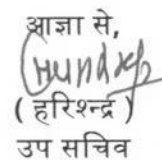 आज्ञा से,
( हरिश्न्द्र )
उप सचिव